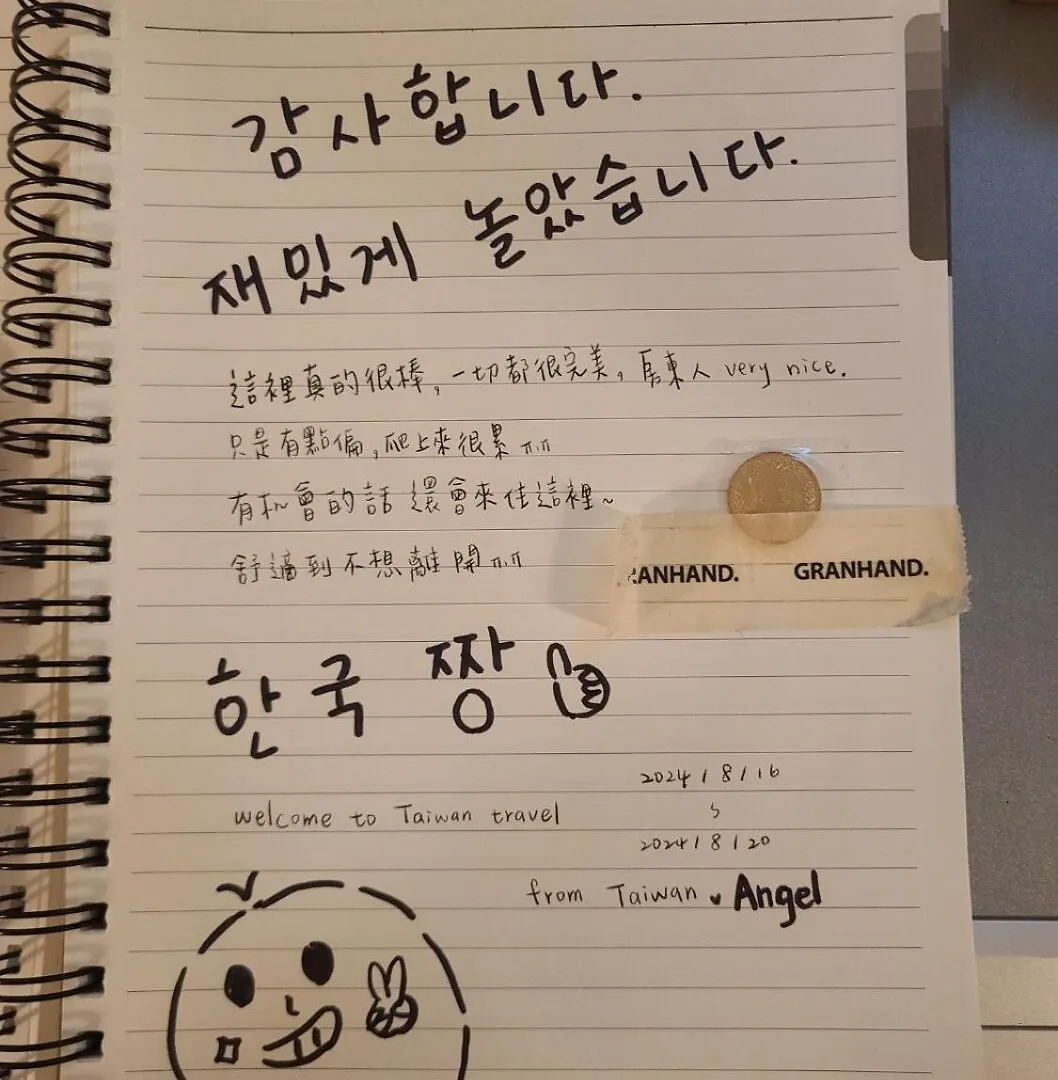 감사합니다.
재밌게 놀았습니다.
這裡真的很棒,一切都很完美,房東人 very nice.
只是有點偏,爬上來很累 ㅠㅠ
有机會的話還會來住這裡~
舒適到不想離開 ㅠㅠ
ANHAND. GRANHAND.
한국 짱
2024/8/16
~
welcome to Taiwan travel
2024/8/20
from Taiwan ♥ Angel